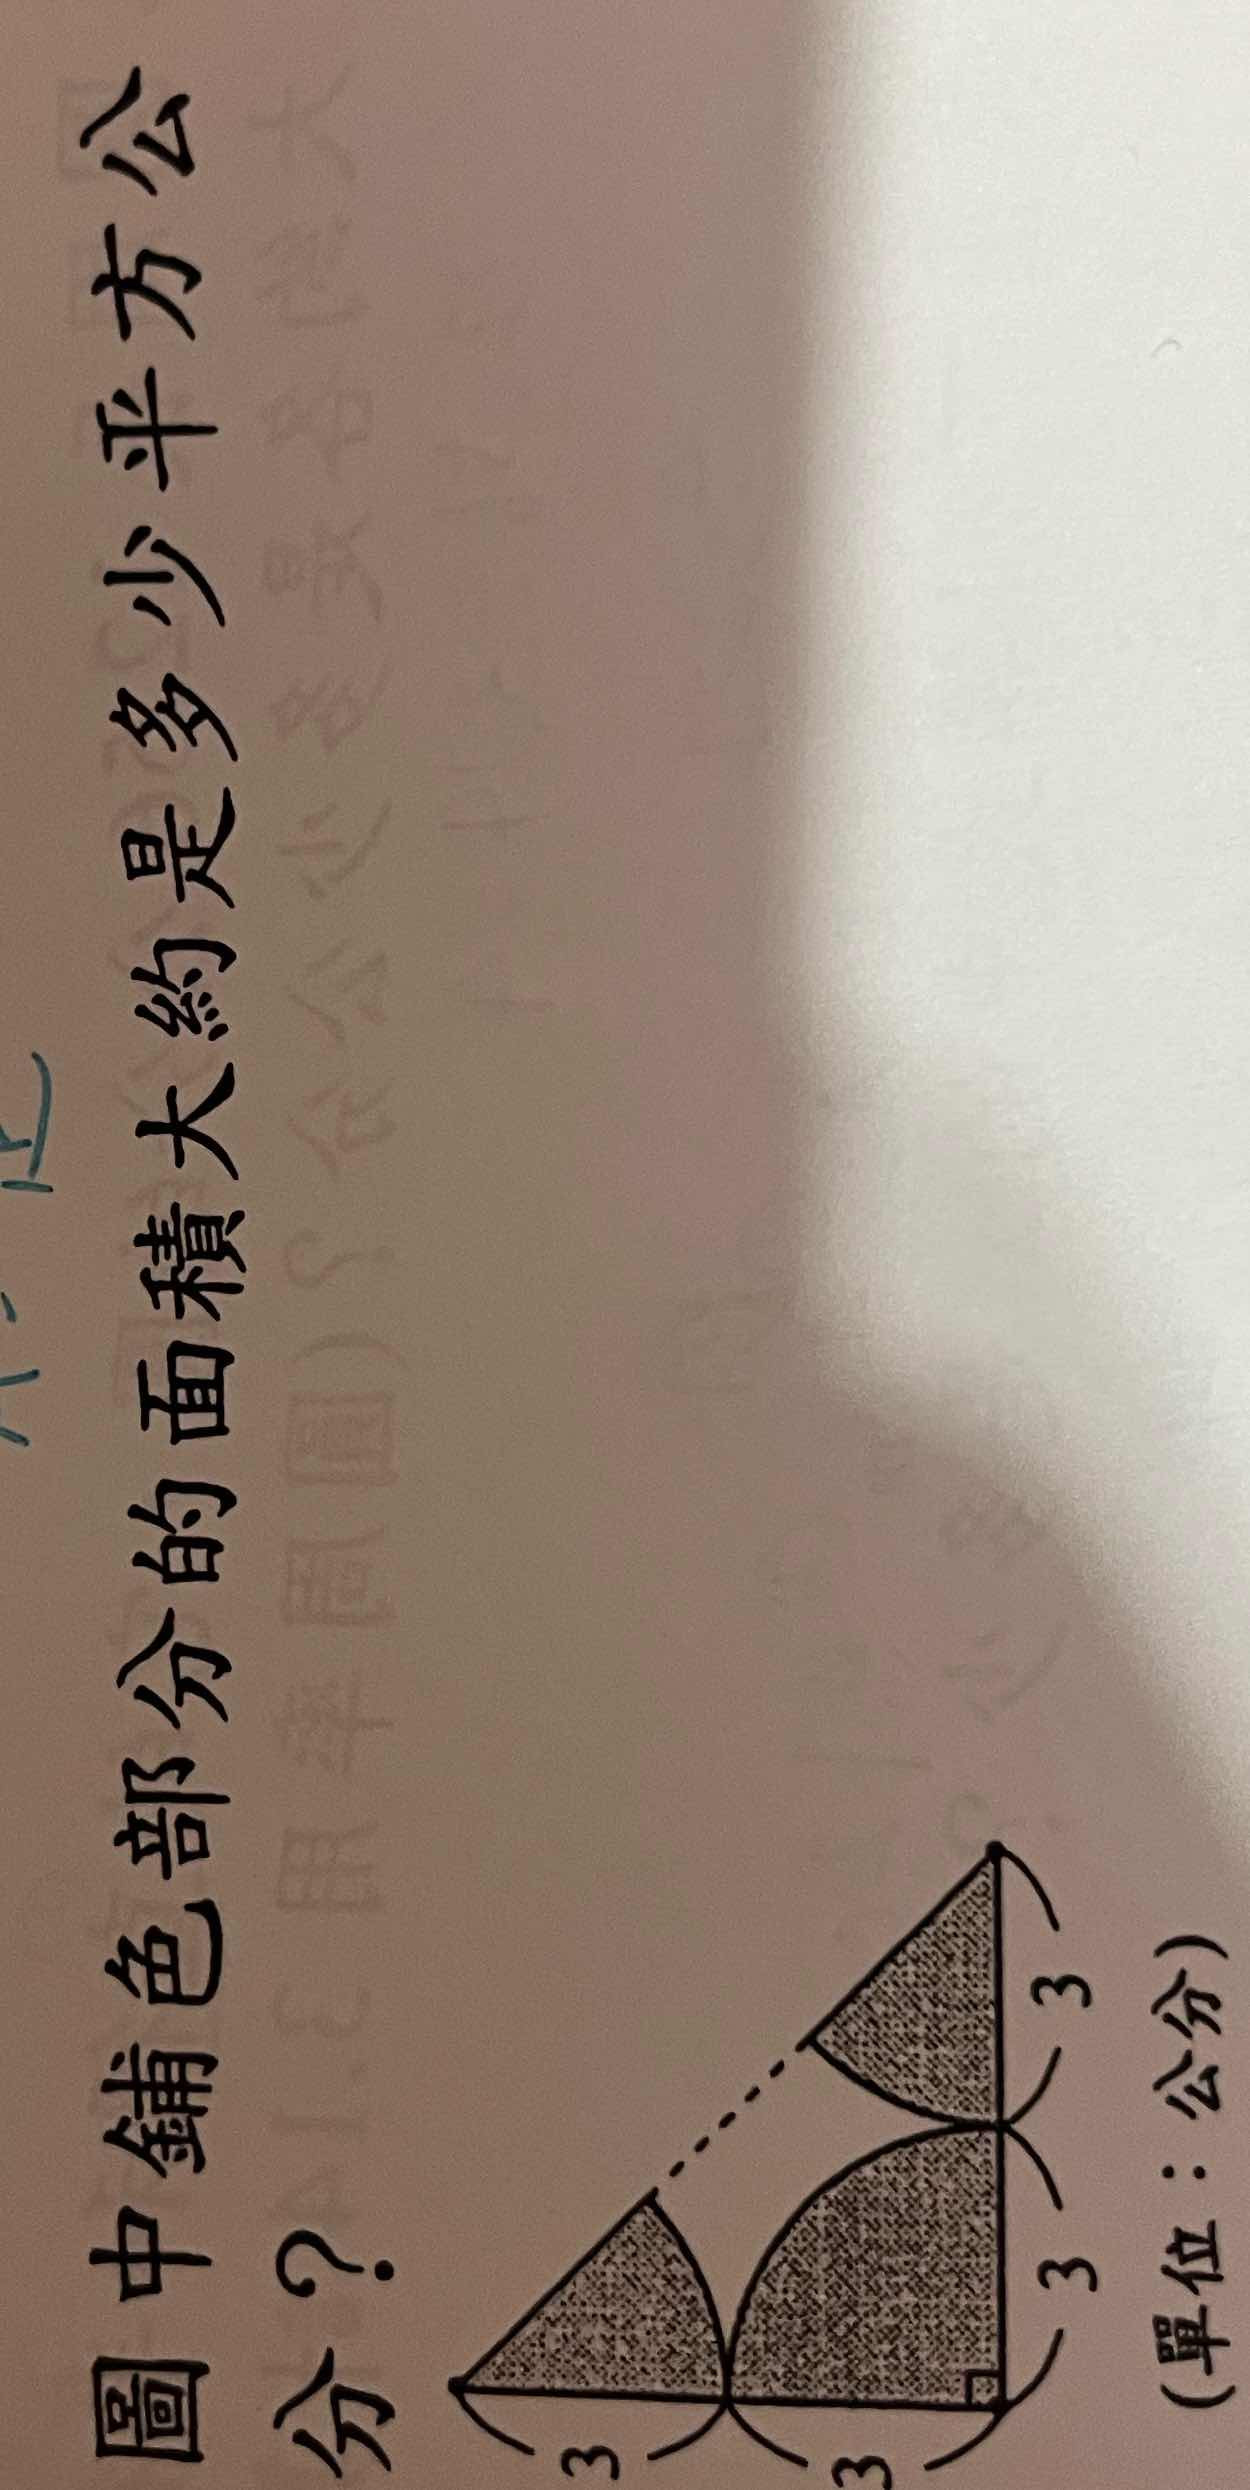 圖中鋪色部分的面積大約是多少平方公
分？
3
3
3
3
(單位：公分)